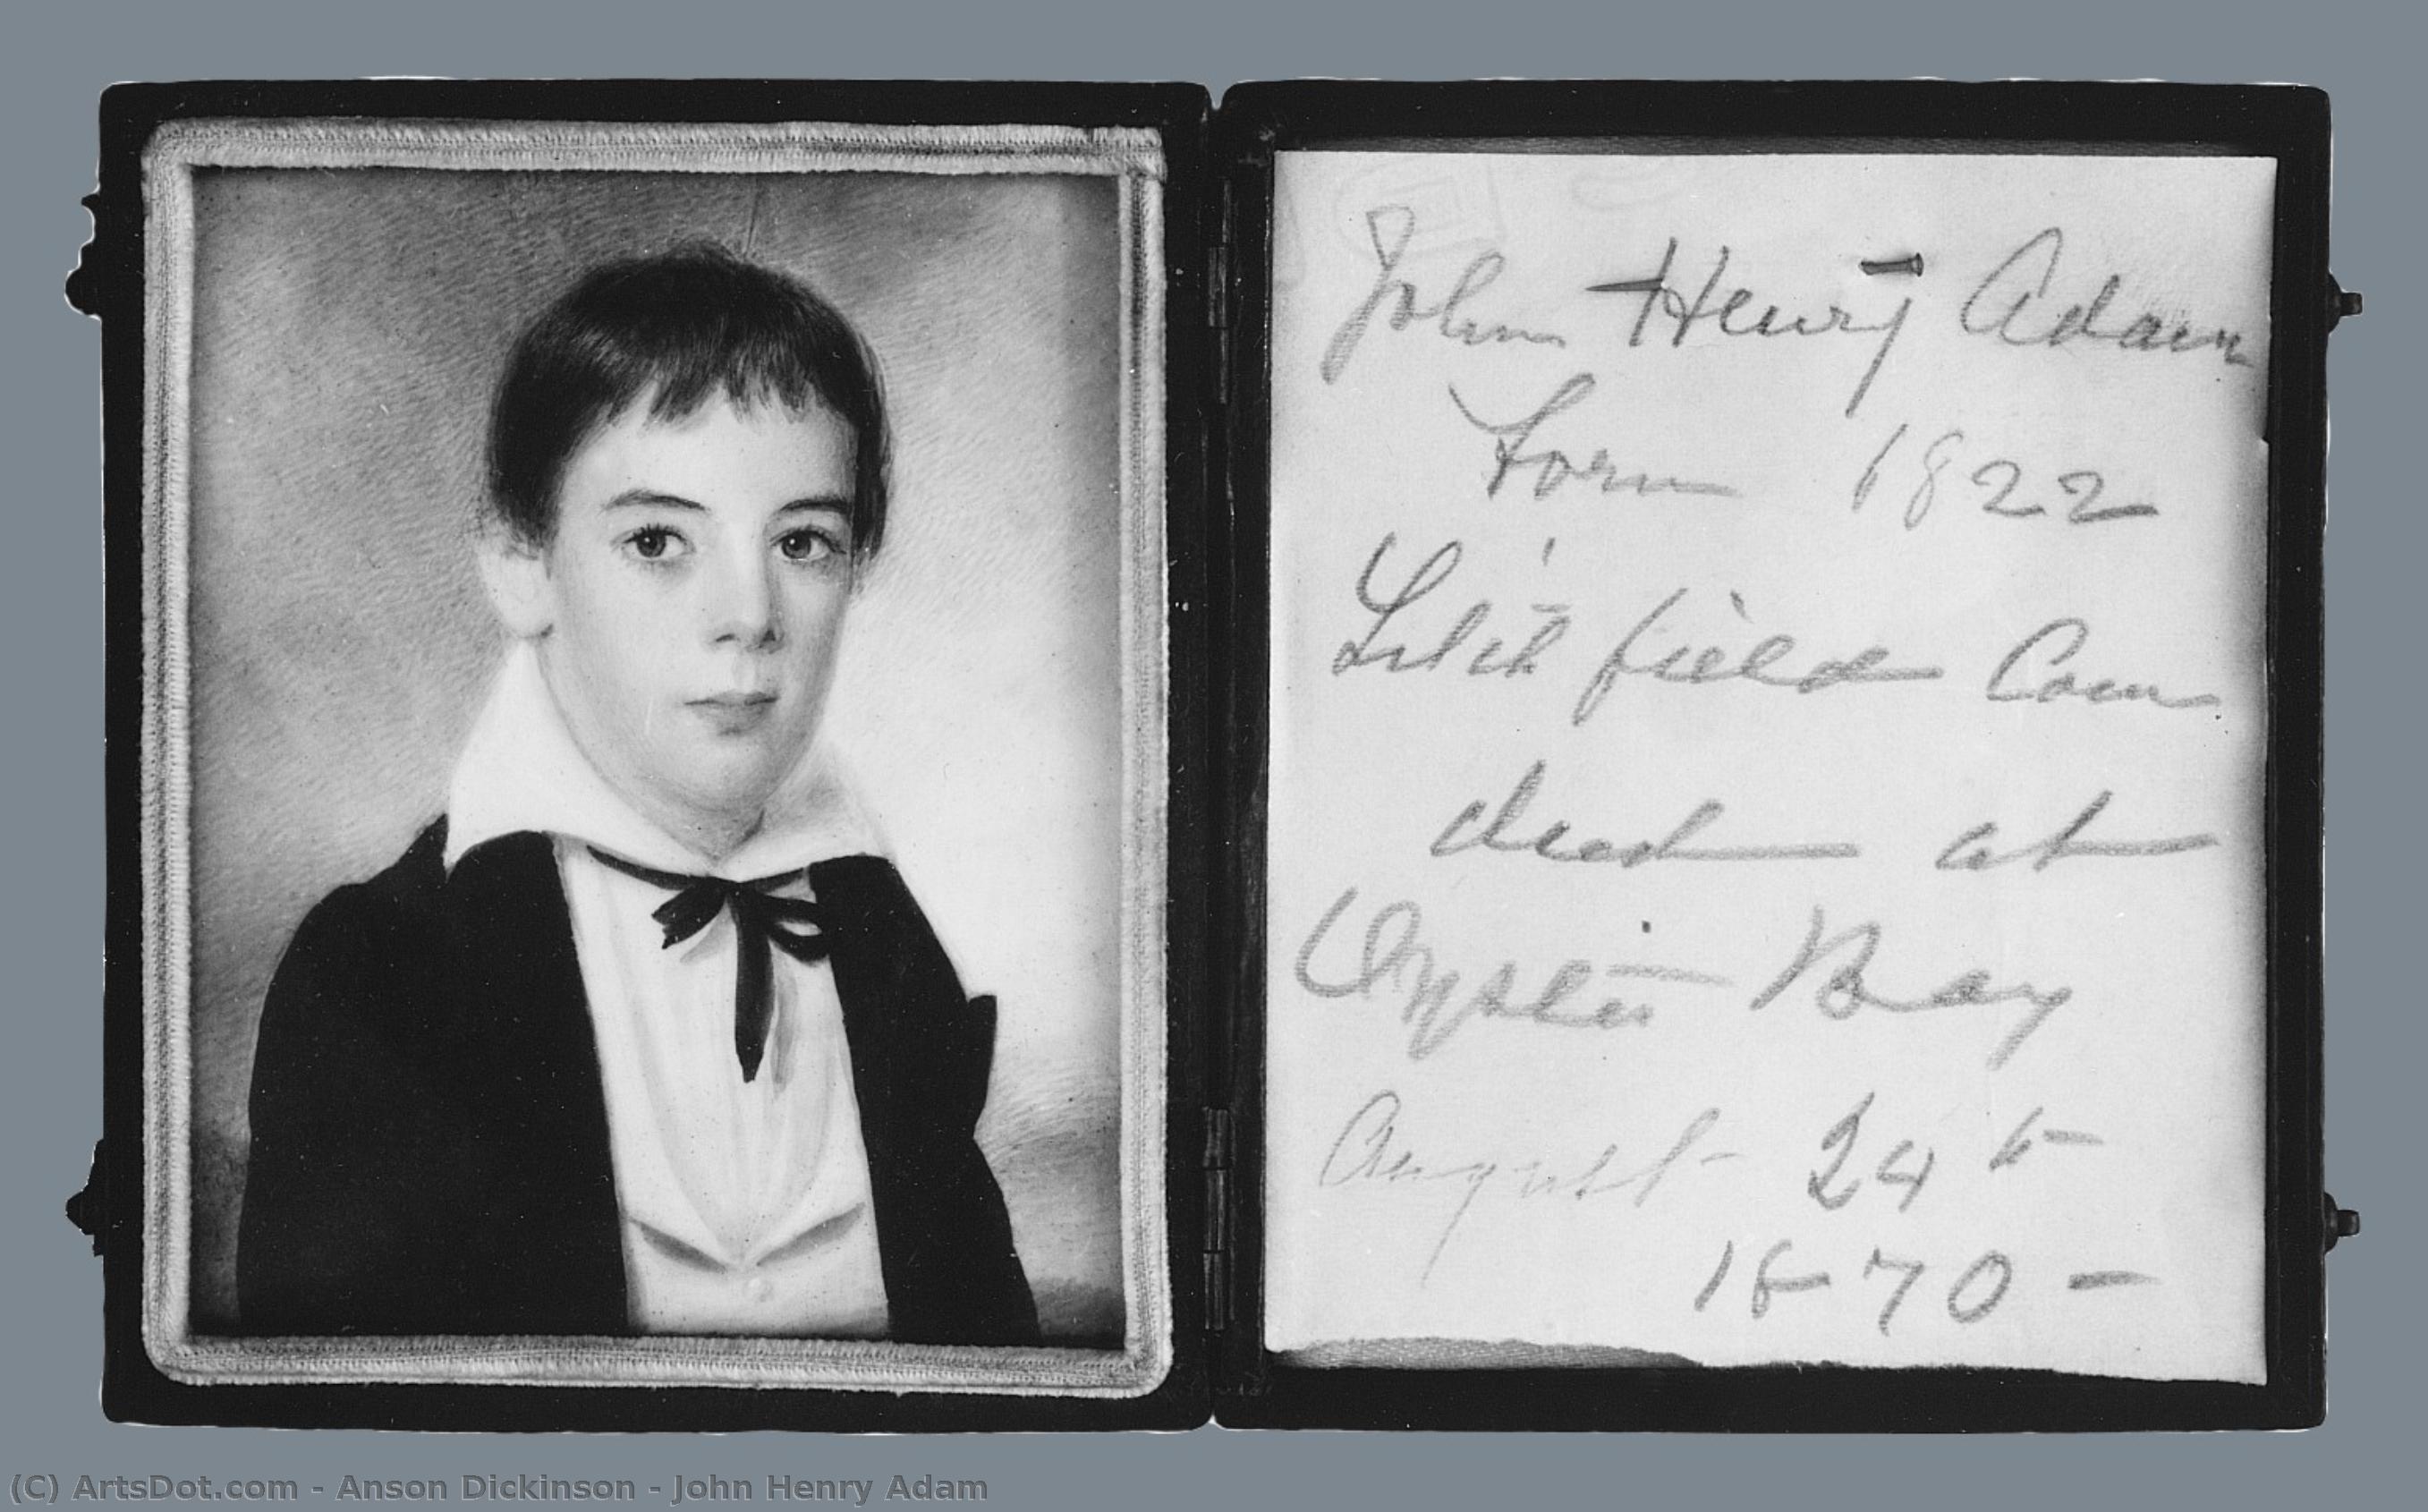 John Henry Adam
born 1822
Litchfield Conn
died at
Oyster Bay
August 24th
1870 -
(C) ArtsDot.com - Anson Dickinson - John Henry Adam